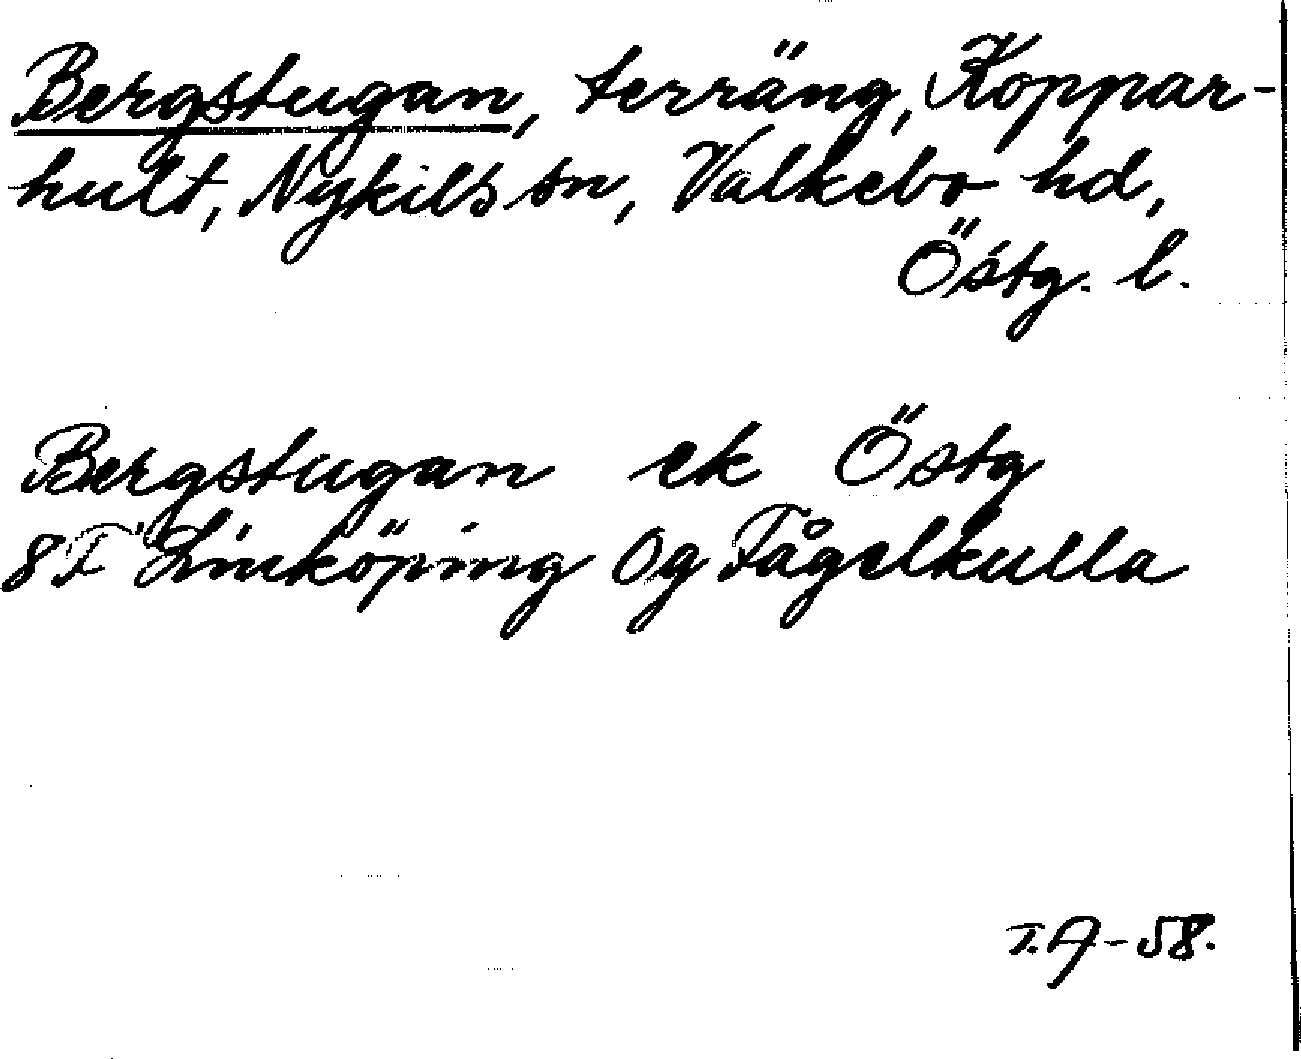 Bergstugan, terräng, Koppar-
hult, Nykils sn, Valkebo hd,
Östg. l.
Bergstugan ek Östg
8F Linköping 0g Fågelkulla
T.A-58.